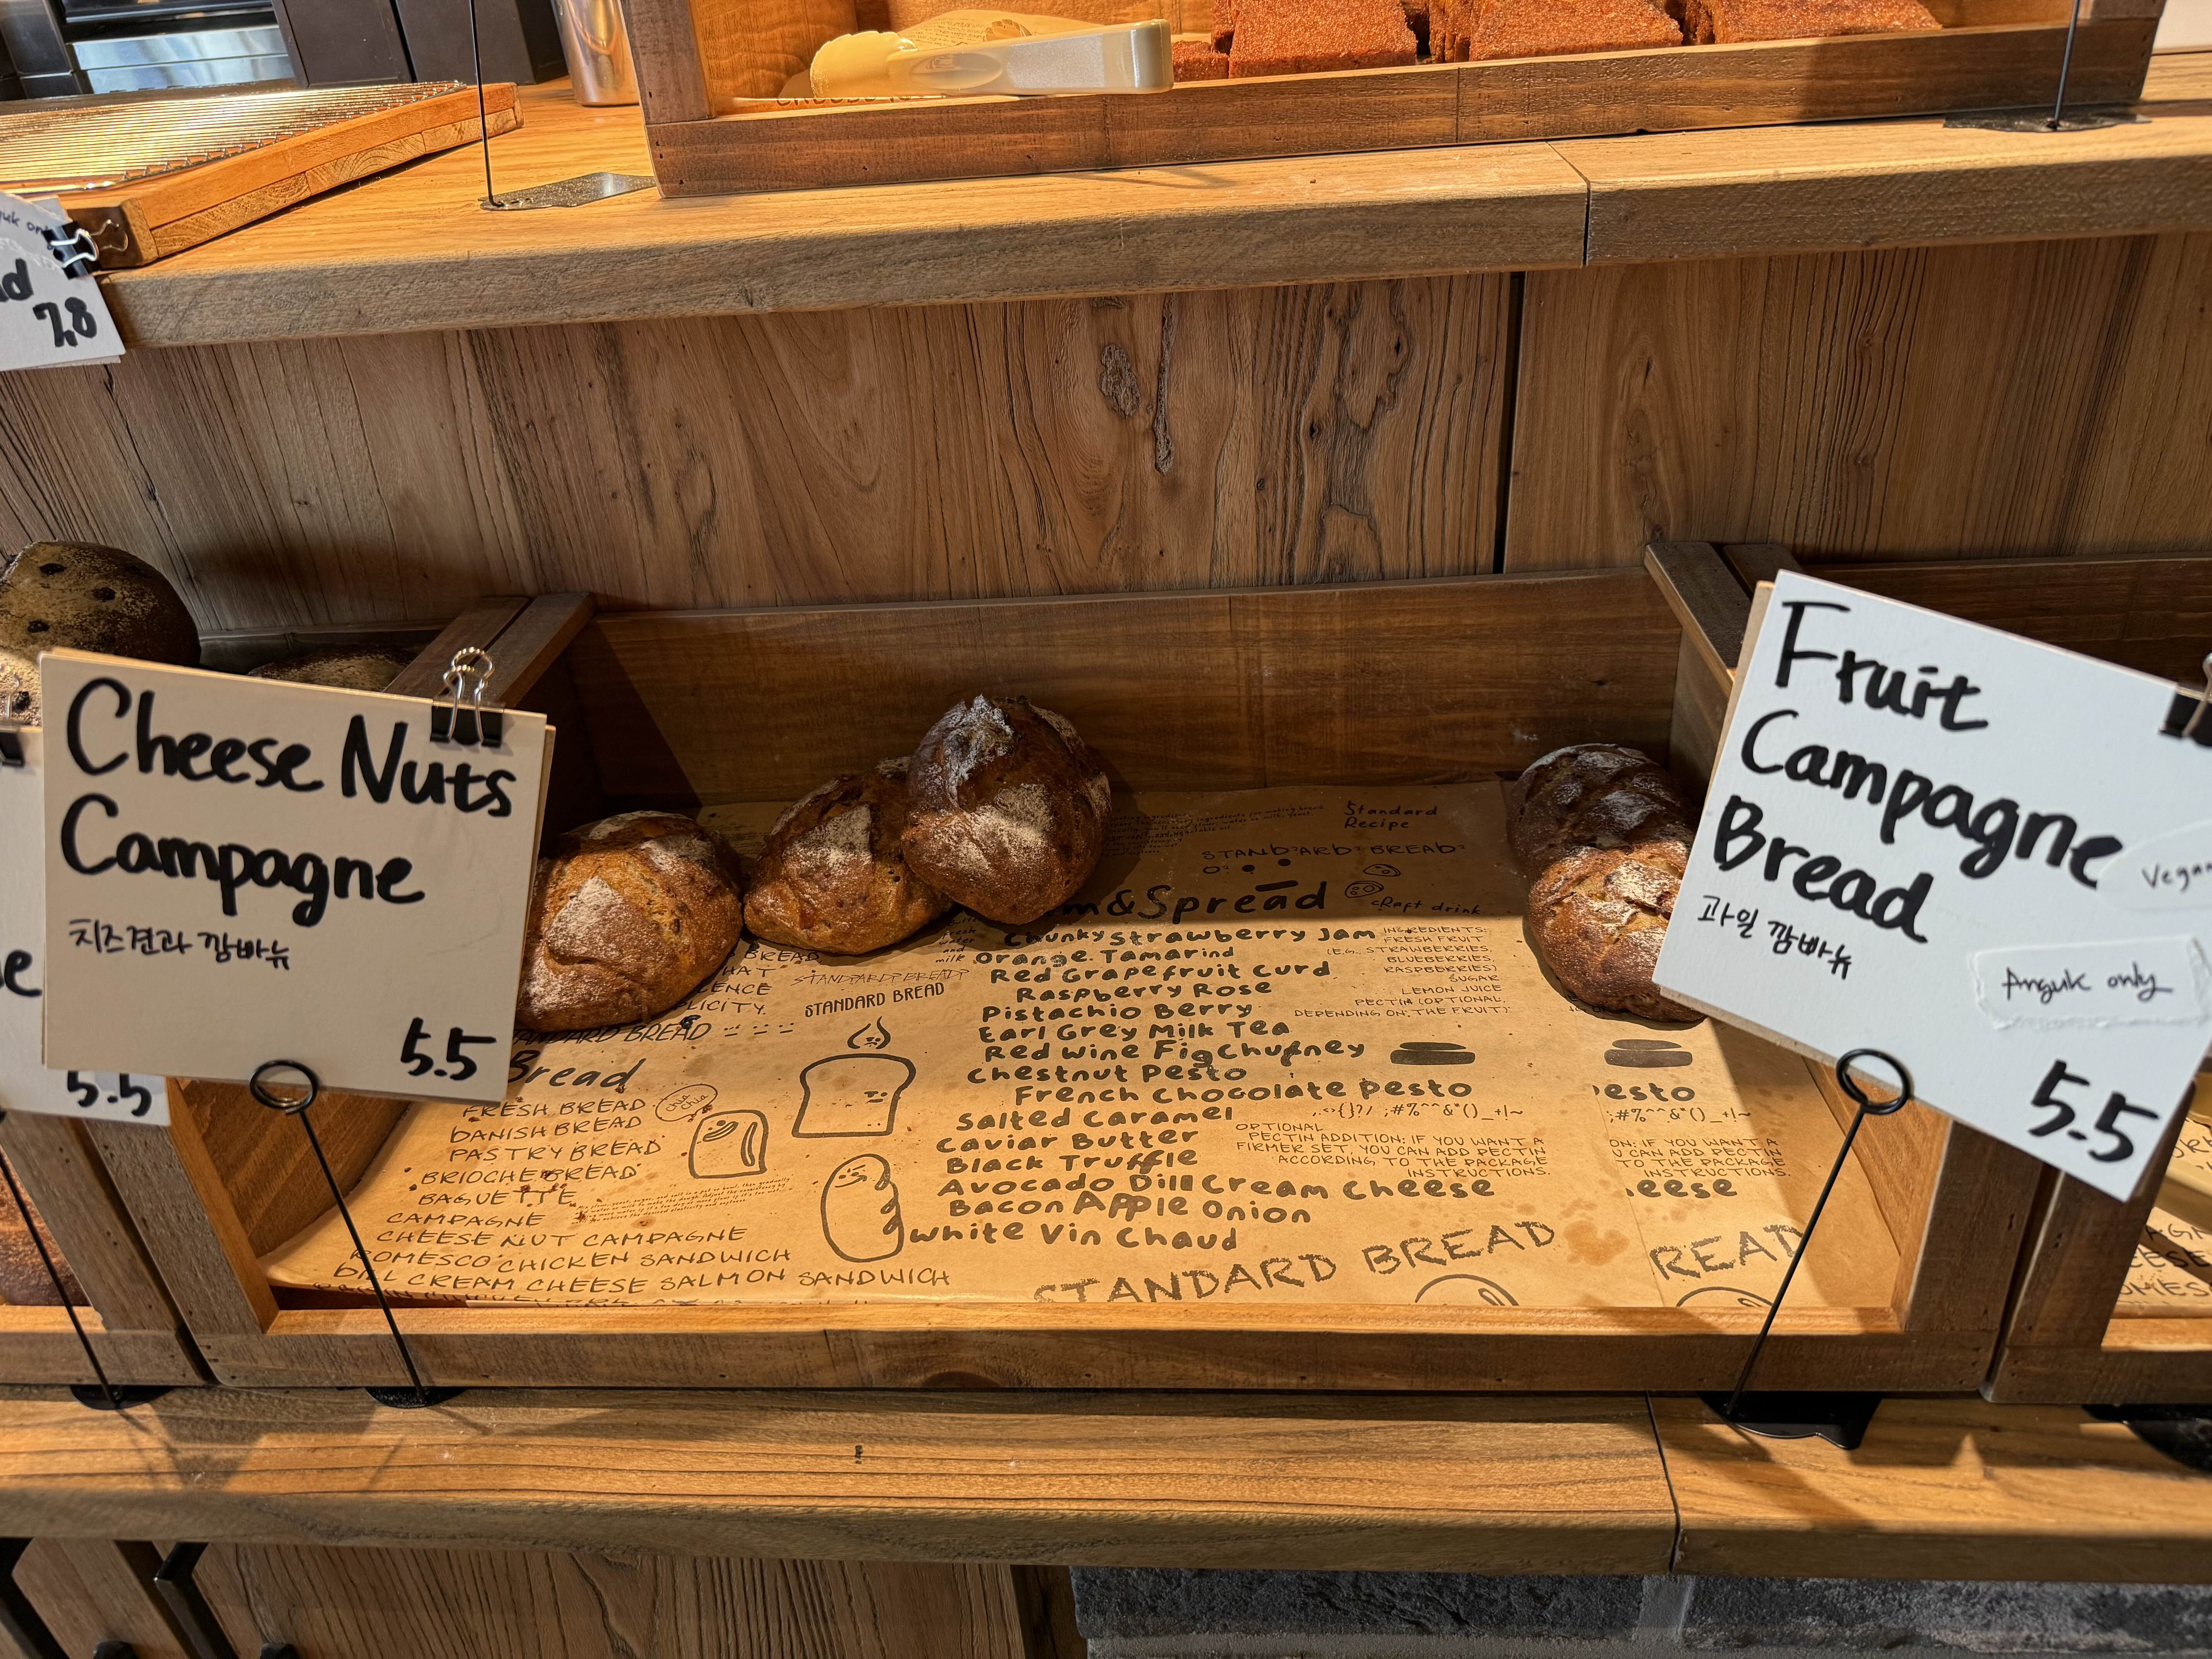 7.8
Cheese Nuts
Campagne
치즈견과 깜빠뉴
5.5
5.5
Fruit
Campagne
Bread
과일 깜빠뉴
Vegan
Anguk only
5.5
Standard
Recipe
STANDARD BREAD
&Spread
craft drink
Chunky Strawberry Jam
Orange Tamarind
Red Grapefruit Curd
Raspberry Rose
Pistachio Berry
Earl Grey Milk Tea
Red Wine Fig Chutney
Chestnut Pesto
French Chocolate Pesto
Salted Caramel
Caviar Butter
Black Truffle
Avocado Dill Cream Cheese
Bacon Apple Onion
White Vin Chaud
INGREDIENTS:
FRESH FRUIT
(E.G., STRAWBERRIES,
BLUEBERRIES,
RASPBERRIES)
SUGAR
LEMON JUICE
PECTIN (OPTIONAL,
DEPENDING ON THE FRUIT)
OPTIONAL
PECTIN ADDITION: IF YOU WANT A
FIRMER SET, YOU CAN ADD PECTIN
ACCORDING TO THE PACKAGE
INSTRUCTIONS.
STANDARD BREAD
STANDARD BREAD
Bread
FRESH BREAD
DANISH BREAD
PASTRY BREAD
BRIOCHE BREAD
BAGUETTE
CAMPAGNE
CHEESE NUT CAMPAGNE
ROMESCO CHICKEN SANDWICH
DILL CREAM CHEESE SALMON SANDWICH
STANDARD BREAD